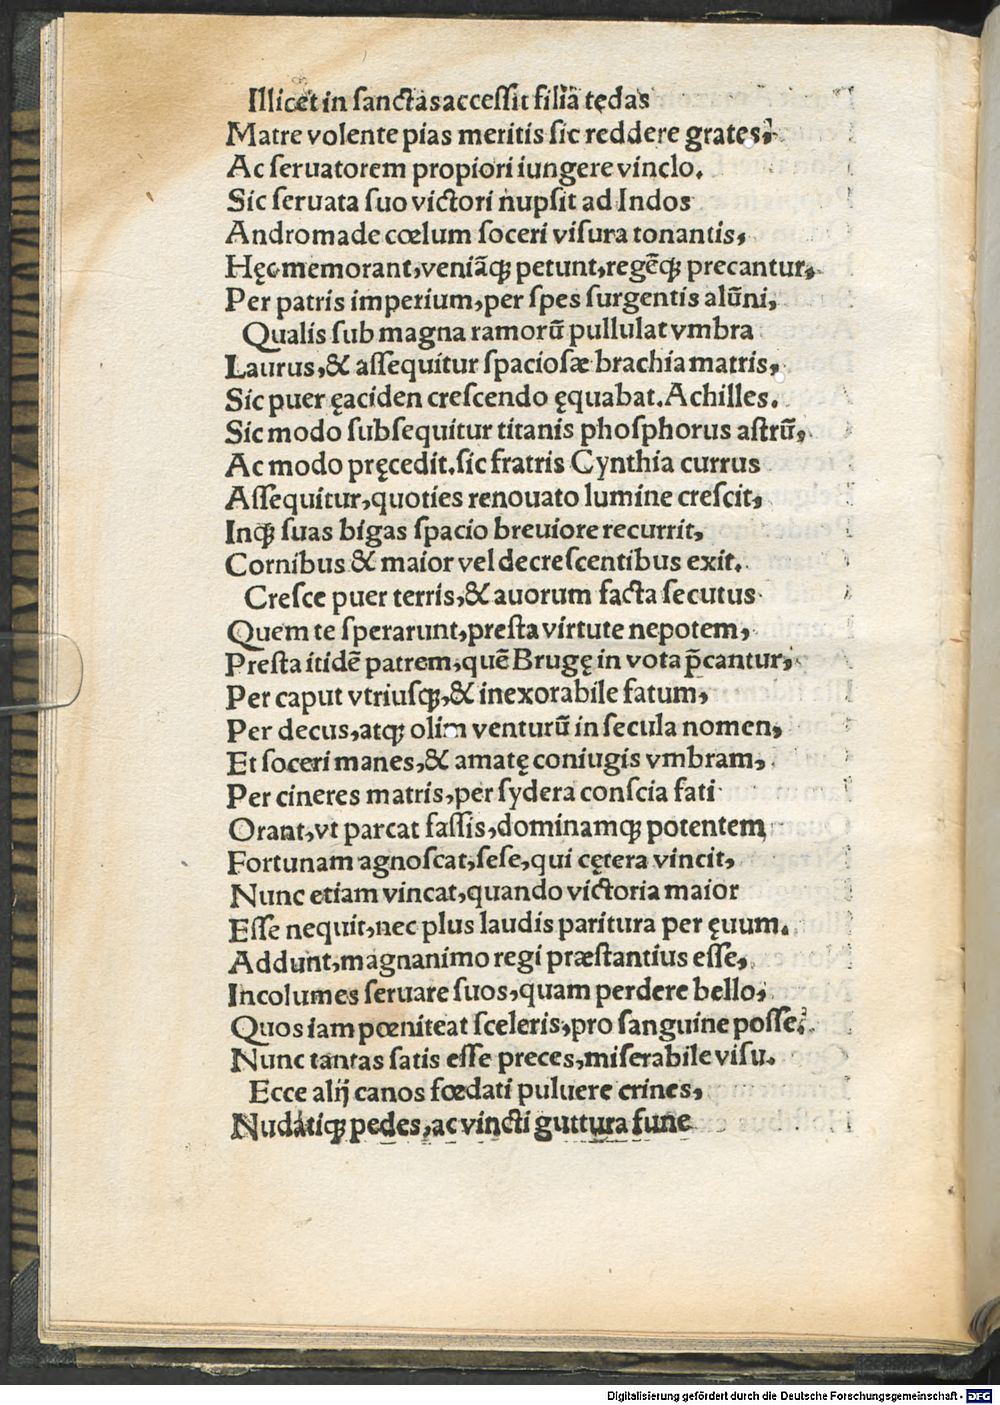 Illicet in sanctas accessit filiā tędas
Matre volente pias meritis sic reddere grates,
Ac seruatorem propiori iungere vinclo.
Sic seruata suo victori nupsit ad Indos
Andromade cœlum soceri visura tonantis,
Hęc memorant, veniāqꝫ petunt, regēqꝫ precantur,
Per patris imperium, per spes surgentis alūni,
Qualis sub magna ramorū pullulat vmbra
Laurus, & assequitur spaciosæ brachia matris,
Sic puer ęaciden crescendo ęquabat. Achilles.
Sic modo subsequitur titanis phosphorus astrū,
Ac modo pręcedit. sic fratris Cynthia currus
Assequitur, quoties renouato lumine crescit,
Inqꝫ suas bigas spacio breuiore recurrit,
Cornibus & maior vel decrescentibus exit.
Cresce puer terris, & auorum facta secutus
Quem te sperarunt, presta virtute nepotem,
Presta itidē patrem, quē Brugę in vota p̄cantur,
Per caput vtriusqꝫ, & inexorabile fatum,
Per decus, atqꝫ olim venturū in secula nomen,
Et soceri manes, & amatę coniugis vmbram,
Per cineres matris, per sydera conscia fati
Orant, vt parcat fassis, dominamqꝫ potentem
Fortunam agnoscat, sese, qui cętera vincit,
Nunc etiam vincat, quando victoria maior
Esse nequit, nec plus laudis paritura per ęuum.
Addunt, magnanimo regi præstantius esse,
Incolumes seruare suos, quam perdere bello,
Quos iam pœniteat sceleris, pro sanguine posse,
Nunc tantas satis esse preces, miserabile visu.
Ecce alij canos fœdati puluere crines,
Nudatiqꝫ pedes, ac vincti guttura fune
Digitalisierung gefördert durch die Deutsche Forschungsgemeinschaft - DFG